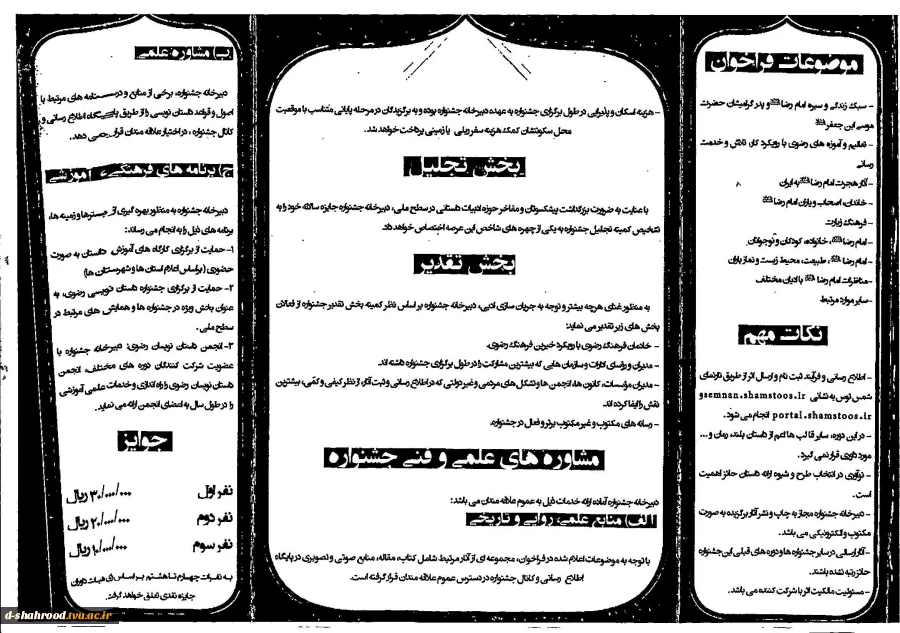 موضوعات فراخوان
- سبک زندگی و سیره امام رضا و پدر گرامیشان حضرت
موسی ابن جعفر
- تعالیم و آموزه های رضوی با رویکرد کار، تلاش و خدمت
رسانی
- آثار هجرت امام رضا به ایران
- خاندان، اصحاب و یاران امام رضا
- فرهنگ زیارت
- امام رضا، خانواده، کودکان و نوجوانان
- امام رضا، طبیعت، محیط زیست و نماز باران
- مناظرات امام رضا با ادیان مختلف
- سایر موارد مرتبط
نکات مهم
- اطلاع رسانی و فرآیند ثبت نام و ارسال اثر از طریق تارنمای
شمس توس به نشانی semnan.shamstoos.ir و
portal.shamstoos.ir انجام می شود.
- در این دوره، سایر قالب ها اعم از داستان بلند، رمان و...
مورد داوری قرار نمی گیرد.
- نوآوری در انتخاب طرح و شیوه ارائه داستان حائز اهمیت
است.
- دبیرخانه جشنواره مجاز به چاپ و نشر آثار برگزیده به صورت
مکتوب و الکترونیکی می باشد.
- آثار ارسالی در سایر جشنواره ها و دوره های قبلی این جشنواره
حائز رتبه نشده باشند.
- مسئولیت مالکیت اثر با شرکت کننده می باشد.
- هزینه اسکان و پذیرایی در طول برگزاری جشنواره به عهده دبیرخانه جشنواره بوده و به برگزیدگان در مرحله پایانی متناسب با موقعیت
محل سکونتشان کمک هزینه سفر ریلی یا زمینی پرداخت خواهد شد.
بخش تجلیل
با عنایت به ضرورت بزرگداشت پیشکسوتان و مفاخر حوزه ادبیات داستانی در سطح ملی، دبیرخانه جشنواره جایزه سالانه خود را به
تشخیص کمیته تجلیل جشنواره به یکی از چهره های شاخص این عرصه اختصاص خواهد داد.
بخش تقدیر
به منظور غنای هرچه بیشتر و توجه به جریان سازی ادبی، دبیرخانه جشنواره بر اساس نظر کمیته بخش تقدیر جشنواره از فعالان
بخش های زیر تقدیر می نماید:
- خادمان فرهنگ رضوی با رویکرد خیرین فرهنگ رضوی.
- مدیران و روسای ادارات و سازمان هایی که بیشترین مشارکت را در طول برگزاری جشنواره داشته اند.
- مدیران مؤسسات، کانون ها، انجمن ها و تشکل های مردمی و غیر دولتی که در اطلاع رسانی و ثبت آثار، از نظر کیفی و کمّی، بیشترین
نقش را ایفا کرده اند.
- رسانه های مکتوب و غیر مکتوب برتر و فعال در جشنواره.
مشاوره های علمی و فنی جشنواره
دبیرخانه جشنواره آماده ارائه خدمات ذیل به عموم علاقه مندان می باشد:
الف) منابع علمی، روایی و تاریخی
با توجه به موضوعات اعلام شده در فراخوان، مجموعه ای از آثار مرتبط شامل کتاب، مقاله، منابع صوتی و تصویری در پایگاه
اطلاع رسانی و کانال جشنواره در دسترس عموم علاقه مندان قرار گرفته است.
ب) مشاوره علمی
دبیرخانه جشنواره، برخی از منابع و درسنامه های مرتبط با
اصول و قواعد داستان نویسی را از طریق پایگاه اطلاع رسانی و
کانال جشنواره، در اختیار علاقه مندان قرار می دهد.
ج) برنامه های فرهنگی، آموزشی
دبیرخانه جشنواره به منظور بهره گیری از بسترها و زمینه ها،
برنامه های ذیل را به انجام می رساند:
۱- حمایت از برگزاری کارگاه های آموزش داستان به صورت
حضوری (بر اساس اعلام استان ها و شهرستان ها)
۲- حمایت از برگزاری جشنواره داستان نویسی رضوی، به
عنوان بخش ویژه در جشنواره ها و همایش های مرتبط در
سطح ملی.
۳- انجمن داستان نویسان رضوی: دبیرخانه جشنواره با
عضویت شرکت کنندگان دوره های مختلف، انجمن
داستان نویسان رضوی را راه اندازی و خدمات علمی آموزشی
را در طول سال به اعضای انجمن ارائه می نماید.
جوایز
نفر اول ۳۰/۰۰۰/۰۰۰ ریال
نفر دوم ۲۰/۰۰۰/۰۰۰ ریال
نفر سوم ۱۰/۰۰۰/۰۰۰ ریال
به نفرات چهارم تا هشتم بر اساس رای هیات داوران
جایزه نقدی تعلق خواهد گرفت.
d-shahrood.tvu.ac.ir